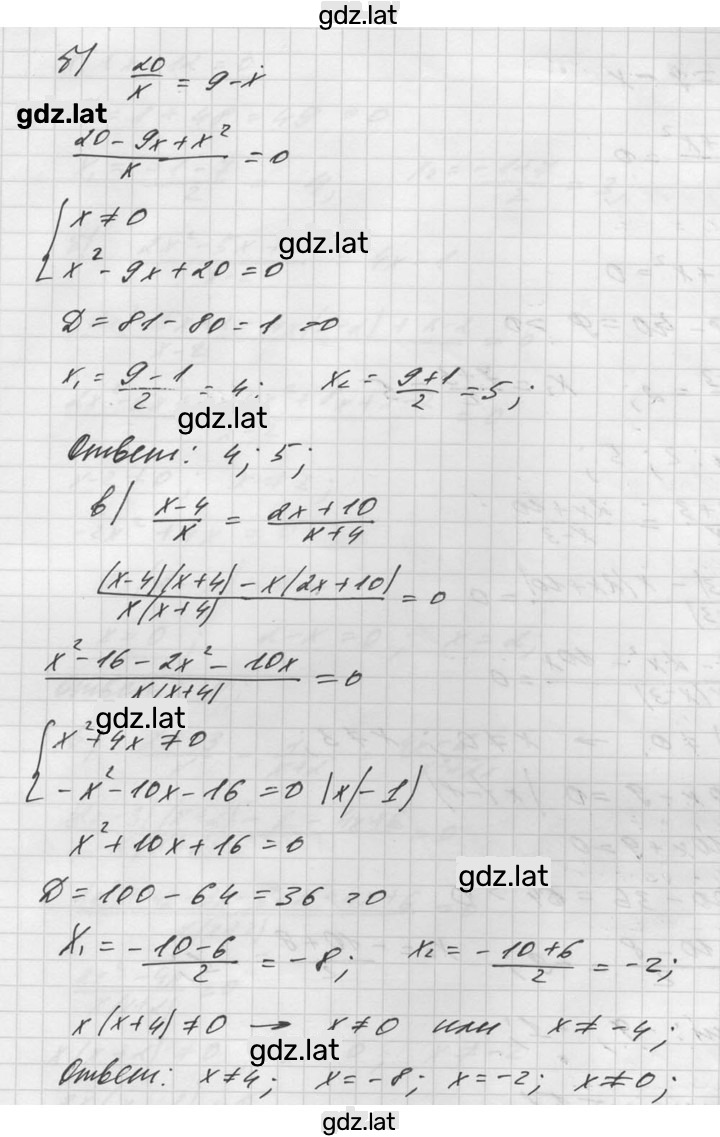 gdz.lat
б) 20/x = 9-x
gdz.lat
(20-9x+x²)/x = 0
{ x ≠ 0
gdz.lat
x²-9x+20=0
D=81-80=1 >0
x₁ = (9-1)/2 = 4; x₂ = (9+1)/2 = 5;
gdz.lat
Ответ: 4; 5;
в) (x-4)/x = (2x+10)/(x+4)
((x-4)(x+4)-x(2x+10))/(x(x+4)) = 0
(x²-16-2x²-10x)/(x(x+4)) = 0
gdz.lat
{ x²+4x ≠ 0
-x²-10x-16=0 |x(-1)
x²+10x+16=0
gdz.lat
D=100-64=36 >0
x₁ = -(10-6)/2 = -8; x₂ = -(10+6)/2 = -2;
x(x+4) ≠ 0 → x ≠ 0 или x ≠ -4;
gdz.lat
Ответ: x ≠ 4; x = -8; x = -2; x ≠ 0;
gdz.lat